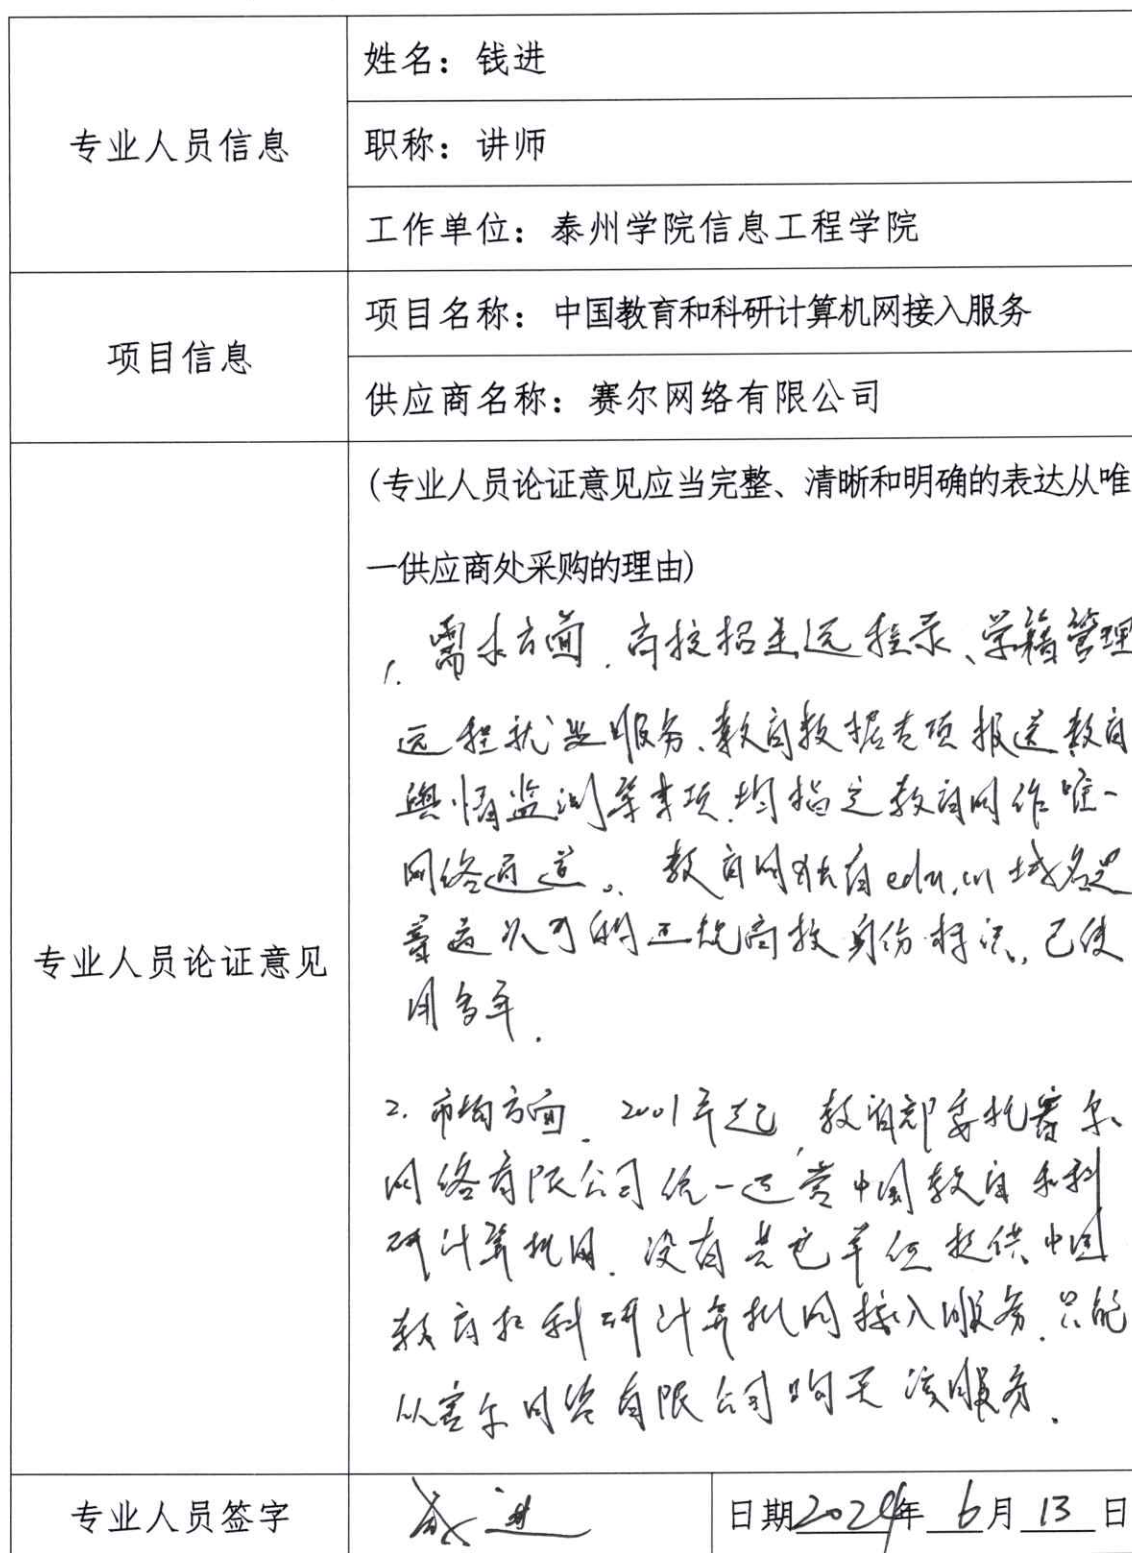 姓名：钱进
专业人员信息
职称：讲师
工作单位：泰州学院信息工程学院
项目名称：中国教育和科研计算机网接入服务
项目信息
供应商名称：赛尔网络有限公司
(专业人员论证意见应当完整、清晰和明确的表达从唯
一供应商处采购的理由)
1. 需求方面．高校招生远程录、学籍管理
远程就业服务、教育数据专项报送教育
舆情监测等事项.均指定教育网作唯一
网络通道。教育网独有edu.cn域名是
普遍认可的正统高校身份标识，已使
用多年．
专业人员论证意见
2. 市场方面．2001年起，教育部委托赛尔
网络有限公司统一运营中国教育和科
研计算机网．没有其它单位提供中国
教育和科研计算机网接入服务．只能
从赛尔网络有限公司购买该服务．
专业人员签字
钱进
日期2024年 6月 13 日